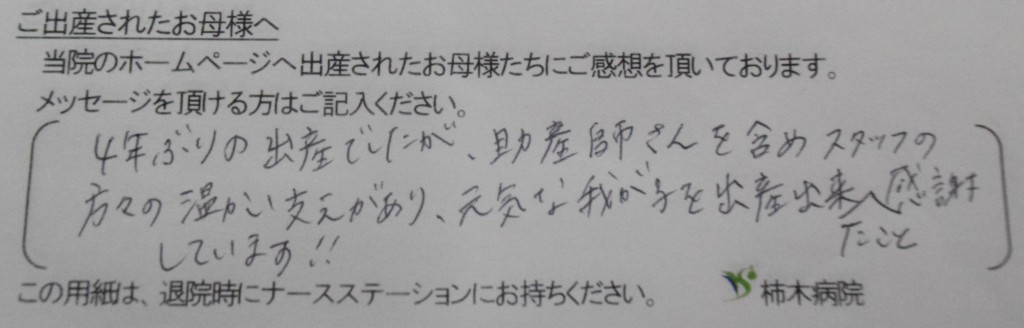 ご出産されたお母様へ
当院のホームページへ出産されたお母様たちにご感想を頂いております。
メッセージを頂ける方はご記入ください。
4年ぶりの出産でしたが、助産師さんを含めスタッフの
方々の温かい支えがあり、元気な我が子を出産出来たことへ感謝
しています!!
この用紙は、退院時にナースステーションにお持ちください。
柿木病院